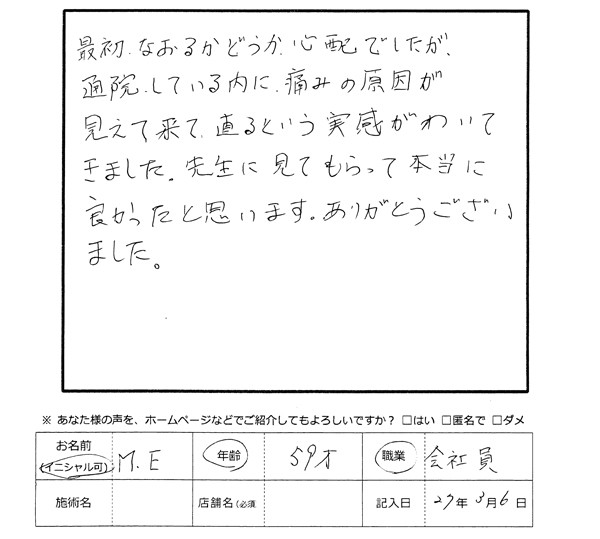 最初、なおるかどうか、心配でしたが、
通院、している内に、痛みの原因が
見えて来て、直るという実感がわいて
きました。先生に見てもらって本当に
良かったと思います。ありがとうござい
ました。
※ あなた様の声を、ホームページなどでご紹介してもよろしいですか？ □はい □匿名で □ダメ
お名前 (イニシャル可) M.E 年齢 59才 職業 会社員
施術名 店舗名(必須 記入日 27年3月6日